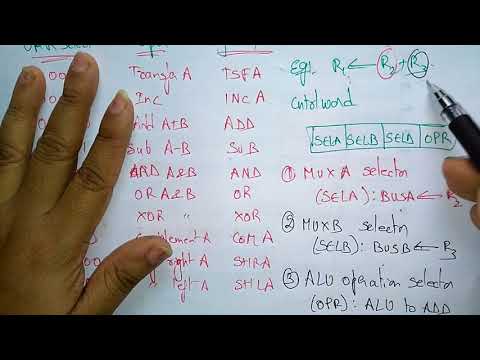 OPR Select
00 Transfer A TSFA
Inc INC A
Add A+B ADD
Sub A-B SUB
AND A&B AND
OR A&B OR
XOR " XOR
Complement A COM A
right A SHRA
left A SHLA
Eg:- R1 ← R2 + R3
Cntrl word
SELA SELB SELA OPR
① MUX A selector
(SELA) : BUSA ← R2
② MUX B selectn
(SELB) : BUSB ← R3
③ ALU operation selector
(OPR) : ALU to ADD